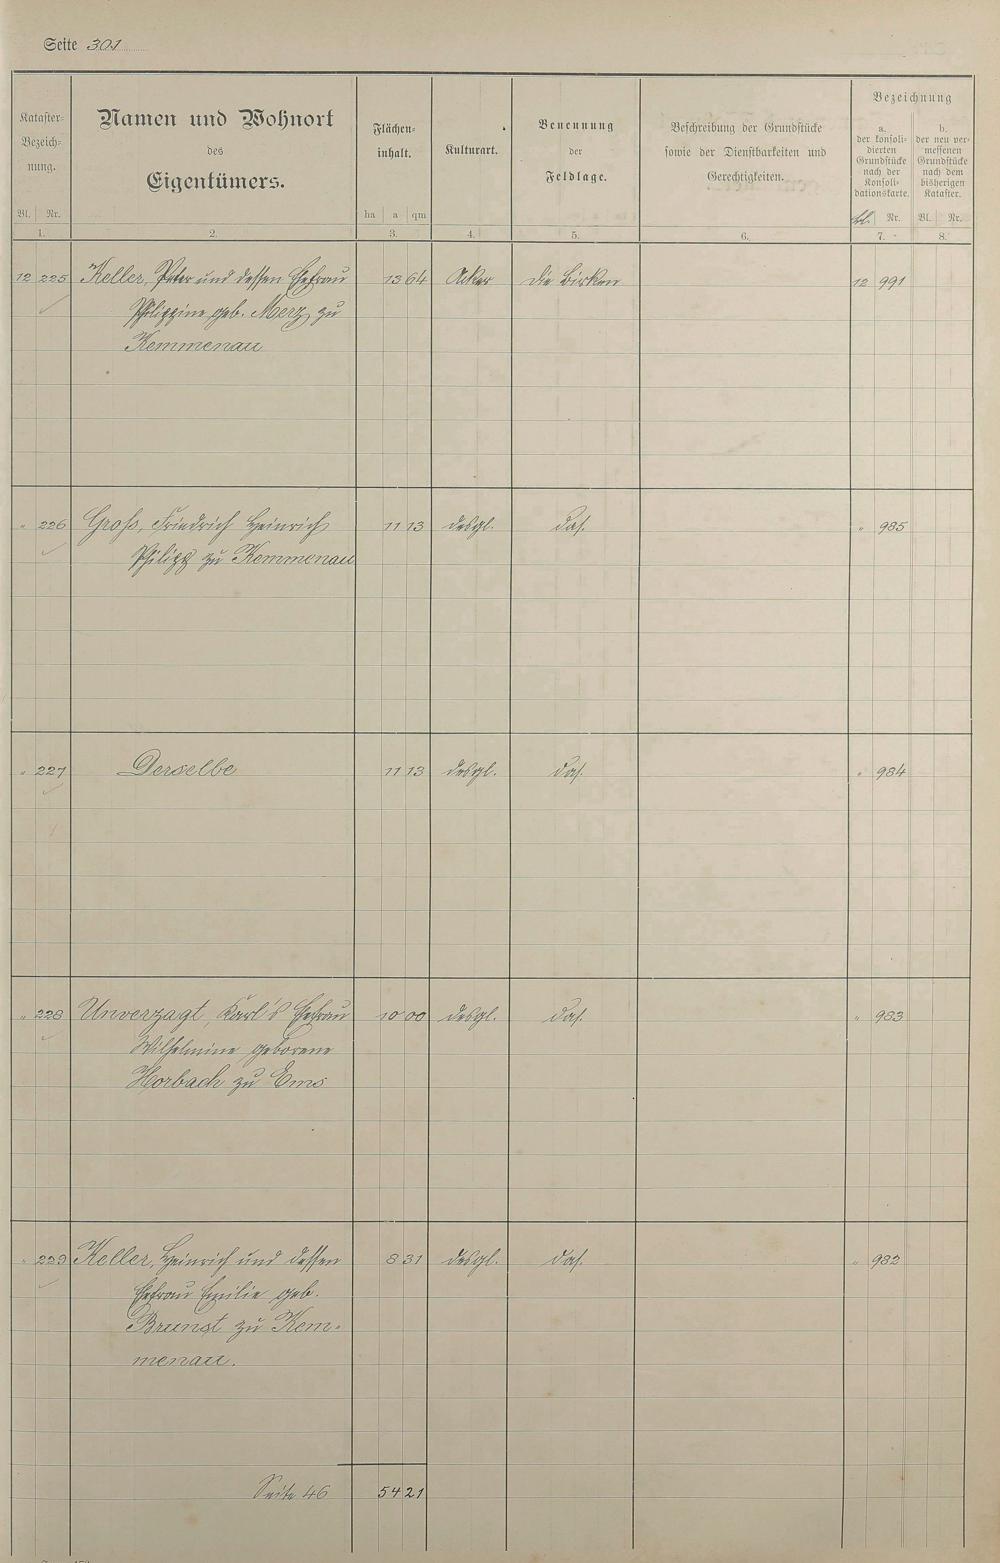 Seite 301
Kataster-
Bezeich-
nung.
Bl. Nr.
1.
Namen und Wohnort
des
Eigentümers.
2.
Flächen-
inhalt.
ha a qm
3.
Kulturart.
4.
Benennung
der
Feldlage.
5.
Beschreibung der Grundstücke
sowie der Dienstbarkeiten und
Gerechtigkeiten.
6.
Bezeichnung
a.
der konsoli-
dierten
Grundstücke
nach der
Konsoli-
dationskarte.
Bl. Nr.
7.
b.
der neu ver-
messenen
Grundstücke
nach dem
bisherigen
Kataster.
Bl. Nr.
8.
12 225 Keller, Peter und dessen Ehefrau 13 64 Acker die Birken 12 991
Philippine geb. Merz zu
Kemmenau
" 226 Groß, Friedrich Heinrich 11 13 desgl. das. " 985
Philipp zu Kemmenau
" 227 Derselbe 11 13 desgl. das. " 984
" 228 Unverzagt, Karl's Ehefrau 10 00 desgl. das. " 983
Wilhelmine geborene
Horbach zu Ems
" 229 Keller, Heinrich und dessen 8 31 desgl. das. " 982
Ehefrau Emilie geb.
Brunst zu Kem-
menau.
Seite 46 54 21